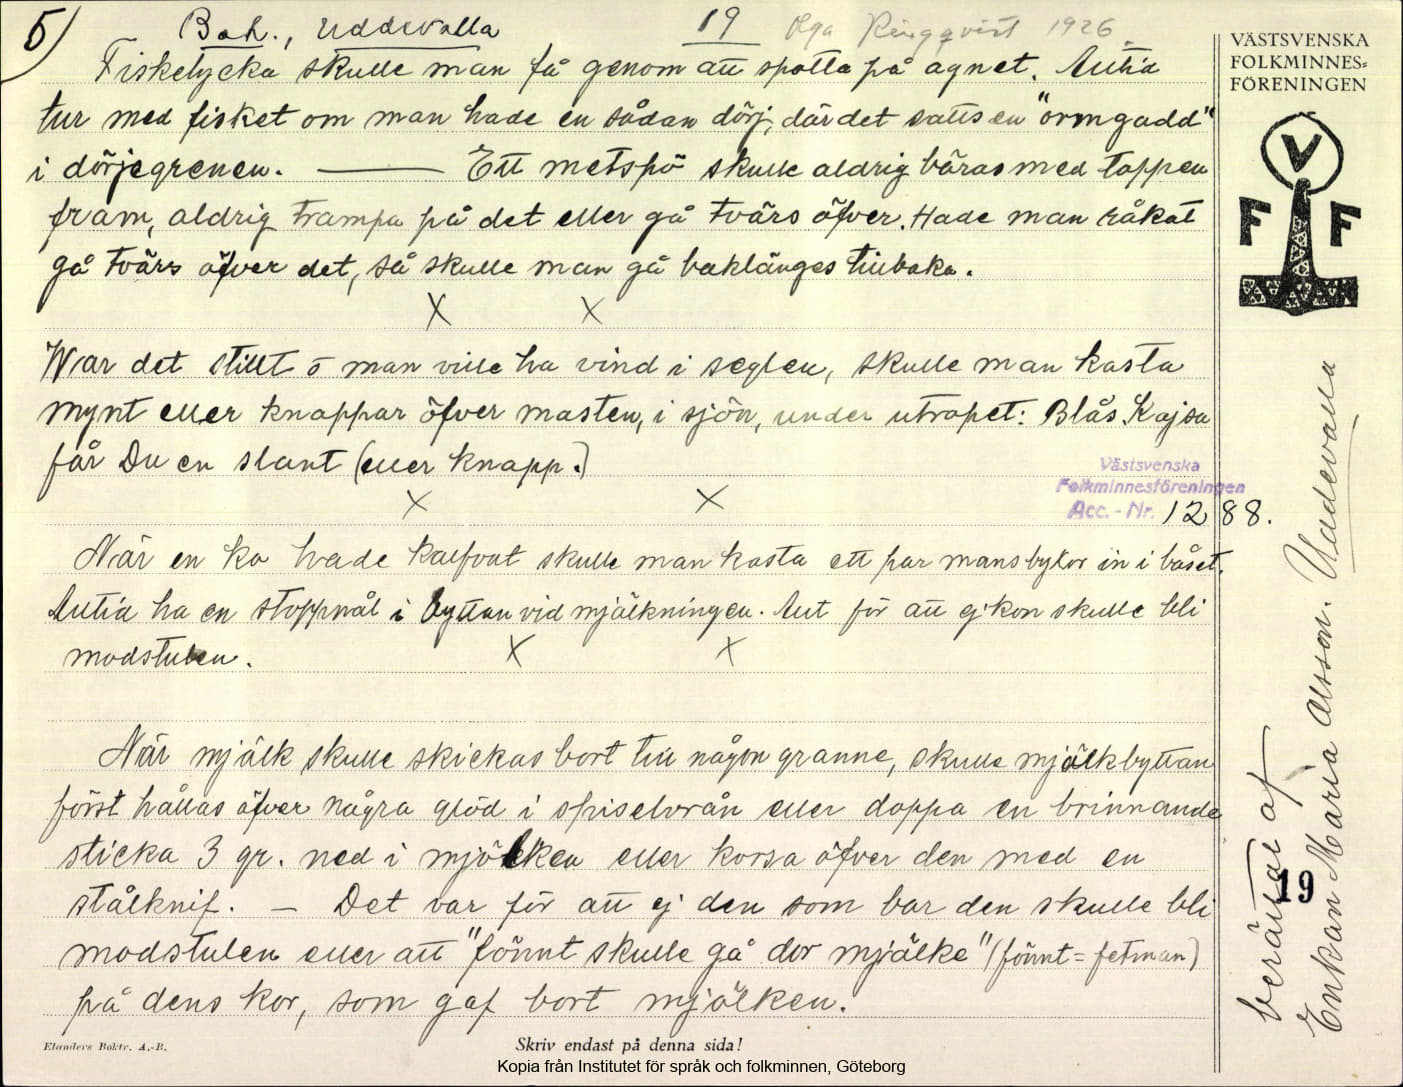 5)
Boh., Uddevalla
19
Olga Ringqvist 1926.
Fiskelycka skulle man få genom att spotta på agnet. Alltid
tur med fisket om man hade en sådan dörj, där det satts en "ormgadd"
i dörjegrenen. — Ett metspö skulle aldrig bäras med toppen
fram, aldrig trampa på det eller gå tvärs öfver. Hade man råkat
gå tvärs öfver det, så skulle man gå baklänges tillbaka.
X X
War det stillt o man ville ha vind i seglen, skulle man kasta
mynt eller knappar öfver masten, i sjön, under utropet: Blås Kajsa
får Du en slant (eller knapp.)
X X
När en ko hade kalfvat skulle man kasta ett par mansbyxor in i båset.
Alltid ha en stoppnål i byttan vid mjälkningen. Allt för att ej kon skulle bli
modstulen.
X X
När mjälk skulle skickas bort till någon granne, skulle mjälkbyttan
först hållas öfver några glöd i spiselvrån eller doppa en brinnande
sticka 3 gr. ned i mjölken eller korsa öfver den med en
stålknif. — Det var för att ej den som bar den skulle bli
modstulen eller att "fönnt skulle gå dor mjälke" (fönnt = fetman)
på dens kor, som gaf bort mjölken.
VÄSTSVENSKA
FOLKMINNES=
FÖRENINGEN
V
F F
Västsvenska
Folkminnesföreningen
Acc.-Nr. 1288.
berättat af
Enkan Maria Olsson. Uddevalla
19
Elanders Boktr. A.-B.
Skriv endast på denna sida!
Kopia från Institutet för språk och folkminnen, Göteborg